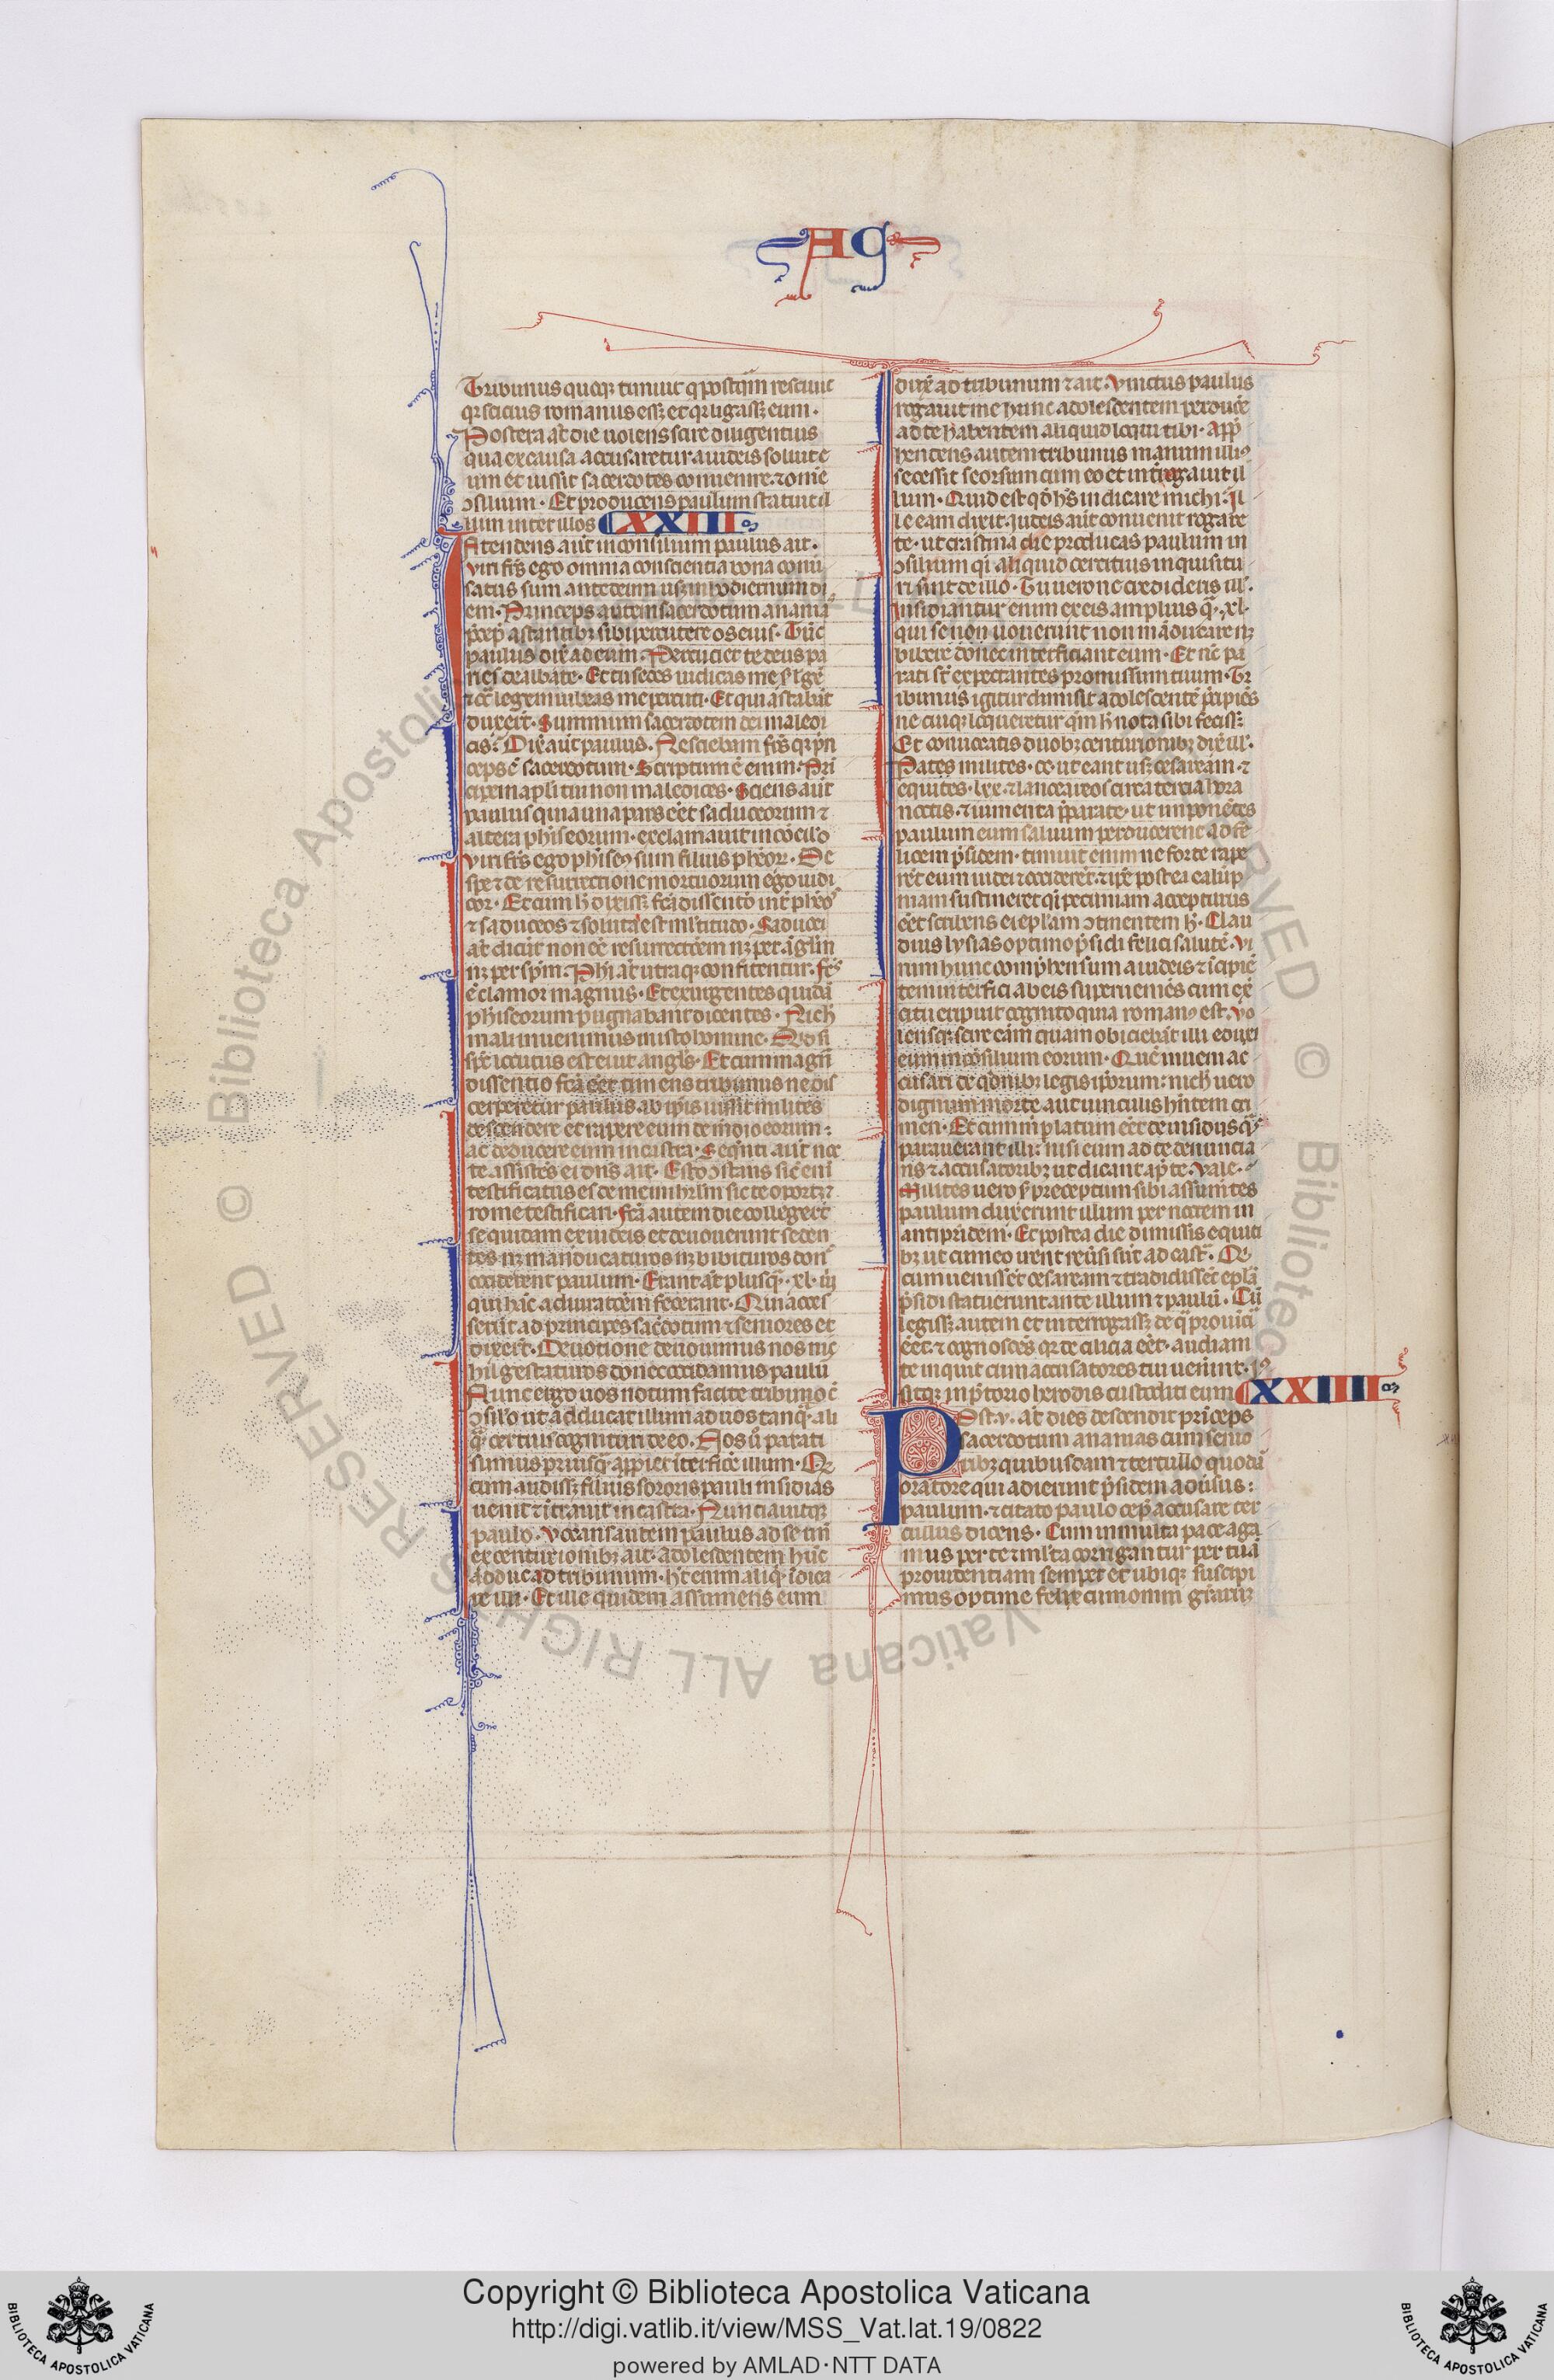 AC
Tribunus quoq; timuit q̄ postq̄m resciuit
q̄r ciuis romanus ess; et q̄r ligass; eum·
Postera aūt die uolens scire diligentius
qua ex causa accusaretur a iudeis soluit e
um et iussit sacerdotes conuenire ⁊ om̄e
ↄsilium· Et producens paulum statuit il
lum inter illos XXIII
Atendens aūt in consilium paulus ait·
Viri fr̄s ego omnia conscientia bona conū
satus sum ante deum usq; in hodiernum di
em· Princeps autem sacerdotum anania
p̄cep̄ astantib; sibi percutere os eius· Tūc
paulus dix̄ ad eum· Percuciet te deus pa
ries dealbate· Et tu sedes iudicas me s̄ lḡe
⁊ cͣ legem iubeas me percuti· Et qui astabāt
dixerūt· Summum sacerdotem dei maledi
cis· Dix̄ aūt paulus· Nesciebam fr̄s q̄r pn̄
ceps ē sacerdotum· Scriptum ē enim· Prī
cipem apl̄i tui non maledices· Sciens aūt
paulus quia una pars eēt saduceorum ⁊
altera phiseorum· exclamauit in cōcilio
Viri fr̄s ego phiseꝰ sum filius pheoꝝ· De
spe ⁊ de resurrectione mortuorum ego iudi
cor· Et cum h̄ dixiss; fc̄a dissentō int̄ pheōs
⁊ saduceos ⁊ soluta est ml̄titudo· Saducei
aūt dicūt non eē resurrectōem nq; per āglm̄
nq; per sp̄m· Phi aūt utraq; confitentur· fc̄s
ē clamor magnus· Et exurgentes quidā
phiseorum pugnabant dicentes· Nich̄
mali inuenimus in isto homine· Quod si
sp̄c locutus est ei aut angls̄· Et cum magn̄
dissentio fc̄a eēt timens tribunus ne dis
cerperetur paulus ab ip̄is iussit milites
descendere et rapere eum de medio eorum·
ac deducere eum in castra· Seq̄nti aūt noc
te assistēs ei dn̄s ait· Esto ↄstans sic eni
testificatus es de me in ihrlm̄ sic te oport; ⁊
rome testificari· fc̄a autem die collegerūt
se quidam ex iudeis et deuouerunt se dicen
tes nq; manducaturos nq; bibituros don̄c
occiderent paulum· Erant aūt plusq̄· xl· uiri
qui hāc adiuratiōem fecerant· Qui acces
serūt ad principes sac̄dotum ⁊ seniores et
dixerūt· Deuotione deuouimus nos ni
hil gustaturos donec occidamus paulū
Nunc ergo uos notum facite tribuno cū
ↄsilio ut adducat illum ad uos tanq̄· ali
q̄· certius cognituri de eo· Nos ū parati
sumus priusq̄· app̄iet int̄fice illum· Qd
cum audiss; filius sororis pauli insidias
uenit ⁊ ītrauit in castra· Nunciauitq;
paulo· Vocans autem paulus ad se unū
ex centurionib; ait· Adolescentem hūc
adduc ad tribunum· h̄t enim aliq̄· īdica
re illi· Et ille quidem assumens eum
dux̄ ad tribunum ⁊ ait· Vinctus paulus
rogauit me hunc adolescentem perduc̄e
ad te habentem aliquid loqui tibi· App̄
hendens autem tribunus manum illiꝰ
secessit seorsum cum eo et interrogauit il
lum· Quid est qd̄ h̄s indicare michi· Il
le eam dixit· Iudeis aūt conuenit rogare
te· ut crastina die producas paulum in
ↄsilium qͣi aliquid cercius inquisitu
ri sint de illo· Tu uero ne credideris ill̄·
Insidiantur enim ex eis amplius q̄· xl·
qui se non uouerunt non māducare nq;
bibere donec interficiant eum· Et nc̄ pa
rati st̄ expectantes promissum tuum· Tr
ibunus igitur dimisit adolescentē p̄cipiēs
ne cuiq; loqueretur qm̄ h̄ nota sibi feciss;
Et conuocatis duob; centurionib; dix̄ ill̄·
Parate milites· cc· ut eant usq; cesaream· ⁊
equites· lxx· ⁊ lancearios· cc· a tercia hora
noctis· ⁊ iumenta p̄parate· ut imponētes
paulum eum saluum perducerent ad fe
licem p̄sidem· timuit enim ne forte rape
rēt eum iudei ⁊ occiderēt· ⁊ ip̄e postea calup̄
niam sustineret qͣi pecuniam accepturus
eēt scribens ei epl̄am ↄtinentem h̄· Clau
dius lysias optimo p̄sidi felici salutē· Vi
rum hunc comp̄hensum a iudeis ⁊ īcipiē
tem interfici ab eis superueniēs cum ex̄
citu eripui· cognito quia romanꝰ est· Vo
lensq; scire cām quam obiciebāt illi eduxi
eum in cōsilium eorum· Quē inueni ac
cusari de q̄stionib; legis ip̄orum· nich̄ uero
dignum morte aut uinculis hn̄tem cri
men· Et cum m̄ perlatum eēt de insidiis q̄s
parauerant illi· misi eum ad te denuncia
ns ⁊ accusatorib; ut dicant ap̄ te· Vale·
Milites uero s̄ preceptum sibi assumētes
paulum duxerunt illum per noctem in
antipridem· Et postera die dimissis equiti
b; ut cum eo irent reūsi sūt ad castͣ· Qi
cum uenissēt cesaream ⁊ tradidissēt epl̄a
p̄sidi statuerunt ante illum ⁊ paulū· Cū
legiss; autem et interrogass; de q̄ prouīci
eēt· ⁊ cognoscēs q̄r de cilicia eēt· audiam
te inquit cum accusatores tui uenerint· Iuꝰ
sitq; in p̄torio herodis custodiri eum XXIIII
Post· v· aūt dies descendit princeps
sacerdotum ananias cum senio
rib; quibusdam ⁊ tertullo quodā
oratore qui adierunt p̄sidem aduersus·
paulum· ⁊ citato paulo cep̄ accusare ter
tullus dicens· Cum in multa pace aga
mus per te ⁊ ml̄ta corrigantur per tuā
prouidentiam semper et ubiq; suscipi
mus optime felix cum omni grātiaꝝ
Copyright © Biblioteca Apostolica Vaticana
http://digi.vatlib.it/view/MSS_Vat.lat.19/0822
powered by AMLAD·NTT DATA
BIBLIOTECA APOSTOLICA VATICANA
BIBLIOTECA APOSTOLICA VATICANA